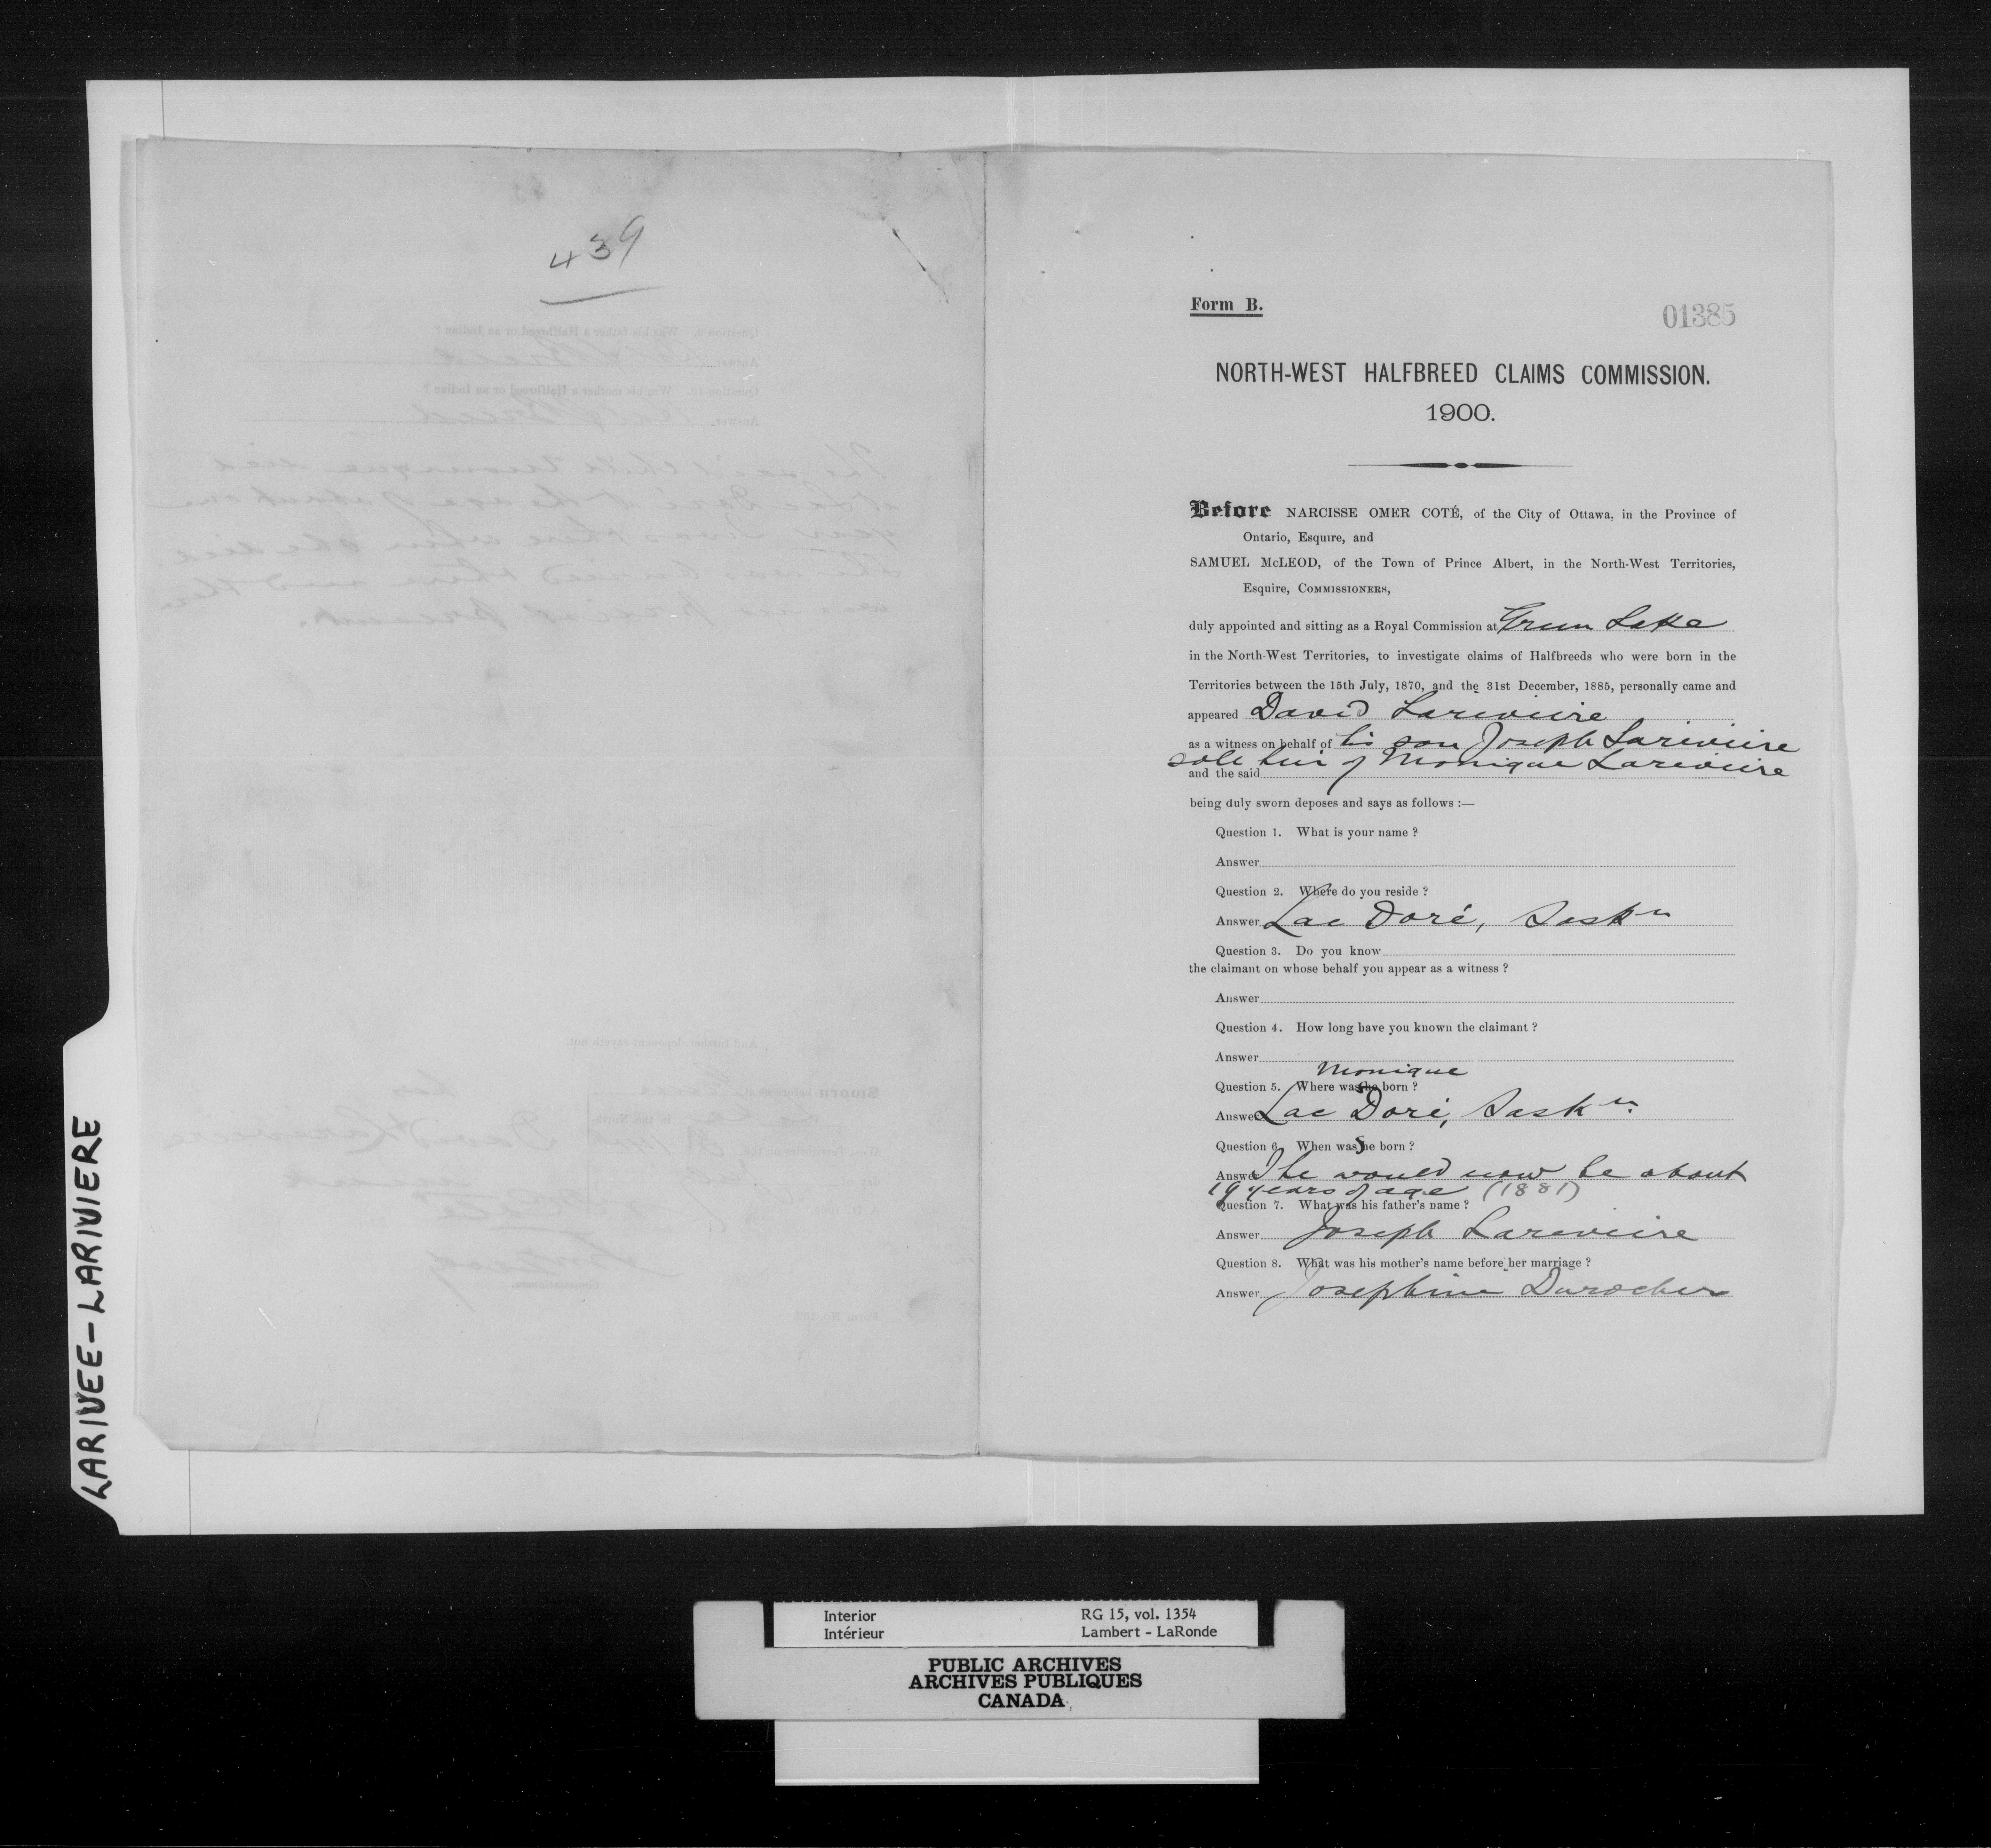 439
Form B.
01385
NORTH-WEST HALFBREED CLAIMS COMMISSION.
1900.
Before NARCISSE OMER COTÉ, of the City of Ottawa, in the Province of
Ontario, Esquire, and
SAMUEL McLEOD, of the Town of Prince Albert, in the North-West Territories,
Esquire, COMMISSIONERS,
duly appointed and sitting as a Royal Commission at Green Lake
in the North-West Territories, to investigate claims of Halfbreeds who were born in the
Territories between the 15th July, 1870, and the 31st December, 1885, personally came and
appeared David Lariviere
as a witness on behalf of his son Joseph Lariviere
sole heir of Monique Lariviere
and the said
being duly sworn deposes and says as follows :—
Question 1. What is your name ?
Answer
Question 2. Where do you reside ?
Answer Lac Doré, Sask n
Question 3. Do you know
the claimant on whose behalf you appear as a witness ?
Answer
Question 4. How long have you known the claimant ?
Answer
Monique
Question 5. Where was she born ?
Answer Lac Doré, Sask n.
Question 6. When was She born ?
Answer She would now be about
19 years of age (1881)
Question 7. What was his father's name ?
Answer Joseph Lariviere
Question 8. What was his mother's name before her marriage ?
Answer Josephine Durocher
LARIVEE-LARIVIERE
Interior RG 15, vol. 1354
Intérieur Lambert - LaRonde
PUBLIC ARCHIVES
ARCHIVES PUBLIQUES
CANADA